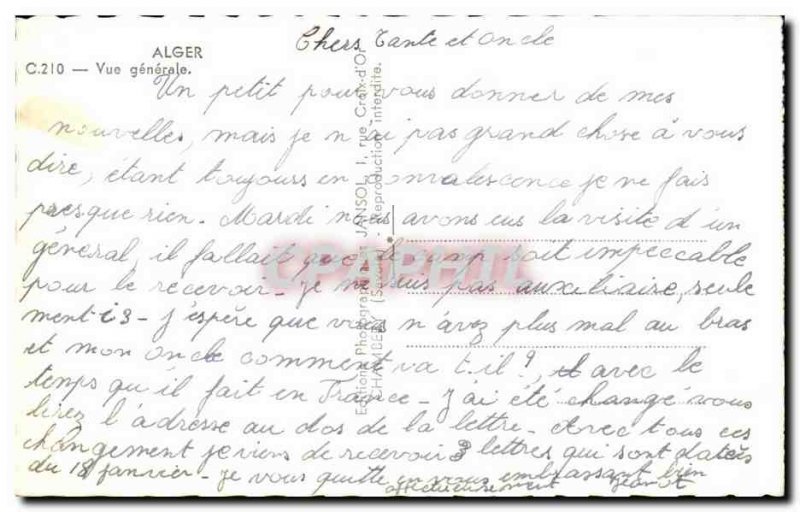 ALGER
C.210 — Vue générale.
Chers Tante et oncle
Un petit pour vous donner de mes
nouvelles, mais je n'ai pas grand chose à vous
dire, étant toujours en convalescence je ne fais
presque rien - Mardi nous avons eus la visite d'un
général, il fallait que le camp soit impeccable
pour le recevoir - Je ne suis pas auxiliaire, seule
ment - J'espère que vous n'avez plus mal au bras
et mon oncle comment va t-il ?, et avec le
temps qu'il fait en France - J'ai été changé vous
lirez l'adresse au dos de la lettre - Avec tous ces
changement je viens de recevoir 3 lettres qui sont datées
du 18 janvier - je vous quitte en vous embrassant bien
affectueusement
Editions Photographiques JANSOL, 1, rue Croix-d'Or
CHAMBÉRY Reproduction interdite.
CPAPHIL